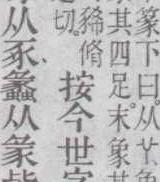 下曰从
象其四足末象其
豨脩
切
按今世字
从豕蠡从彖皆